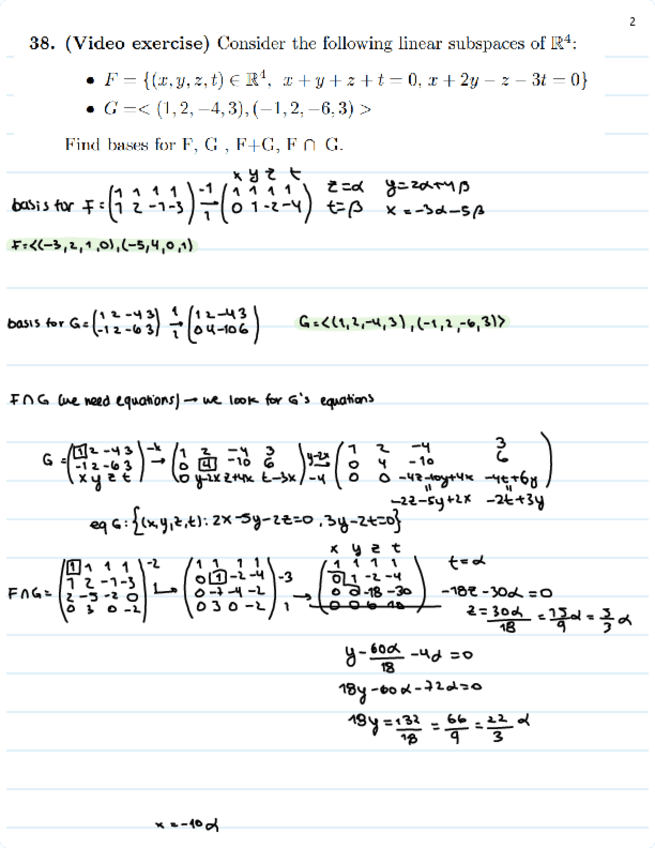 2
38. (Video exercise) Consider the following linear subspaces of ℝ⁴:
• F = {(x, y, z, t) ∈ ℝ⁴, x + y + z + t = 0, x + 2y − z − 3t = 0}
• G =< (1, 2, −4, 3), (−1, 2, −6, 3) >
Find bases for F, G , F+G, F ∩ G.
x y z t
basis for F = (1 1 1 1 / 1 2 -1 -3) -1 / 1 → (1 1 1 1 / 0 1 -2 -4) z=α y=2α+4β
t=β x=-3α-5β
F=<(-3,2,1,0),(-5,4,0,1)
basis for G = (1 2 -4 3 / -1 2 -6 3) 1 / 1 → (1 2 -4 3 / 0 4 -10 6) G=<(1,2,-4,3),(-1,2,-6,3)>
F∩G (we need equations) → we look for G's equations
G = (1 2 -4 3 / -1 2 -6 3 / x y z t) -x → (1 2 -4 3 / 0 4 -10 6 / 0 y-2x z+4x t-3x) y-2x / -4 → (1 2 -4 3 / 0 4 -10 6 / 0 0 -4z-10y+4x -4t+6y)
-2z-5y+2x -2t+3y
eq G: {(x,y,z,t): 2x-5y-2z=0, 3y-2t=0}
x y z t
F∩G = (1 1 1 1 / 1 2 -1 -3 / 2 -5 -2 0 / 0 3 0 -2) -2 → (1 1 1 1 / 0 1 -2 -4 / 0 -7 -4 -2 / 0 3 0 -2) -3 / 1 → (1 1 1 1 / 0 1 -2 -4 / 0 0 -18 -30 / 0 0 6 10) t=α
-18z-30α=0
z=30α/18 = 15/9 α = 3/3 α
y-60α/18 -4α=0
18y-60α-72α=0
18y=132/18 = 66/9 = 22/3 α
x=-10α